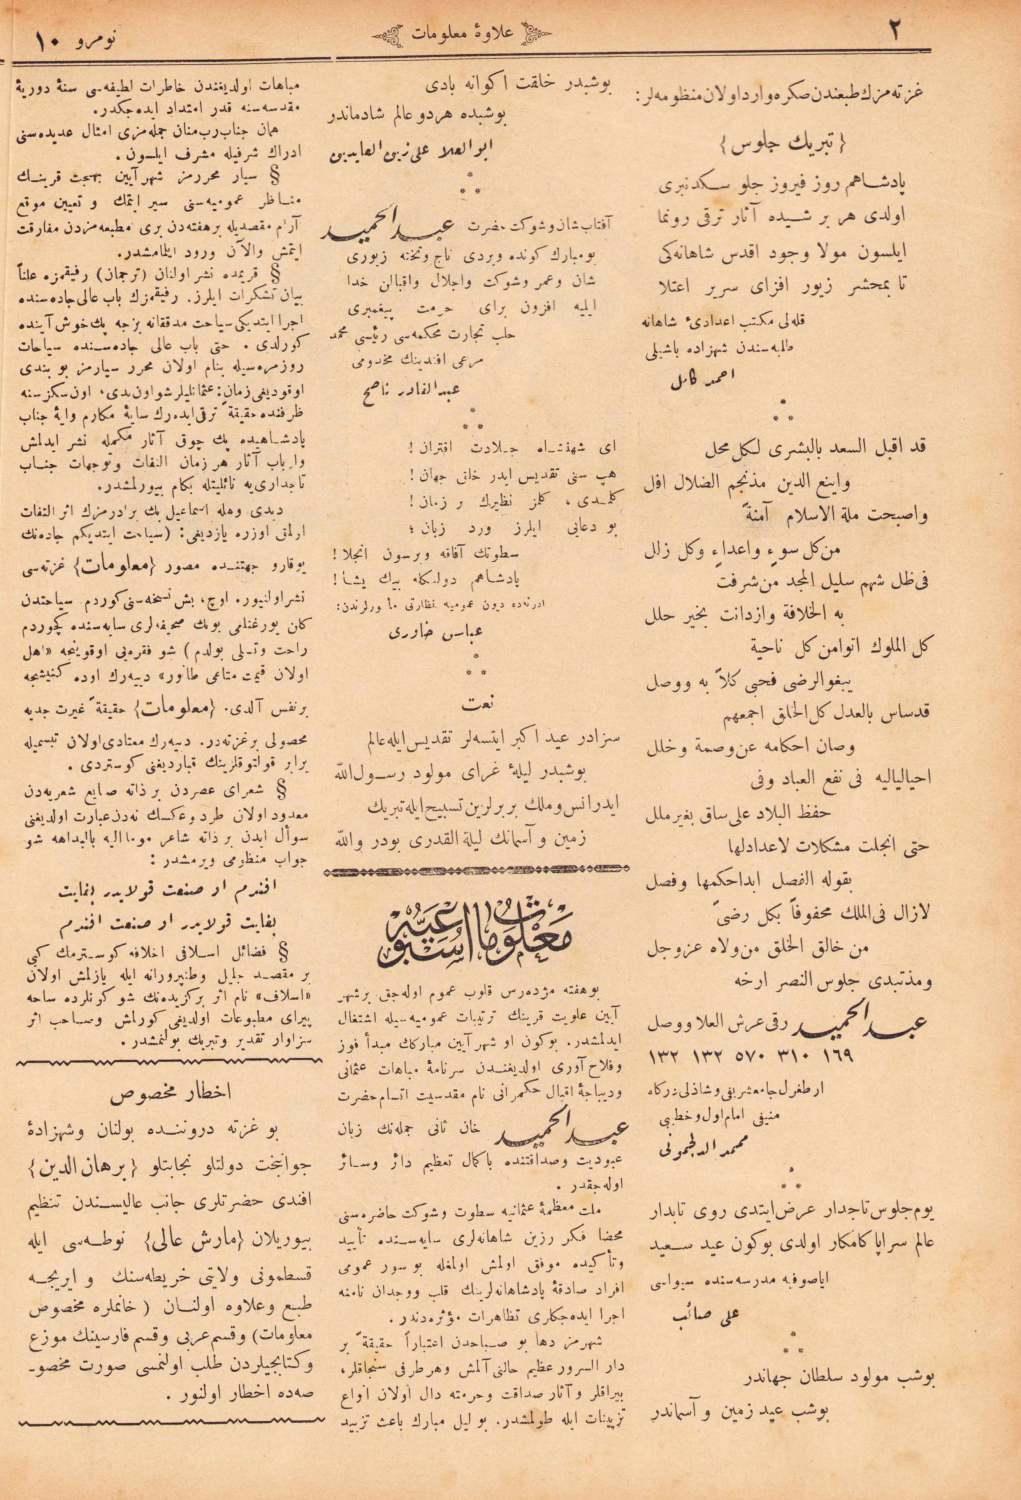 ٢
علاوهٔ معلومات
نومرو ١٠
غزته مزك طبعندن صكره وارد اولان منظومه لر:
{ تبريك جلوس }
پادشاهم روز فيروز جلو سكدنبرى
اولدى هر بر شيده آثار ترقى رونما
ايلسون مولا وجود اقدس شاهانه كى
تا بمحشر زيور افزاى سرير اعتلا
قله لى مكتب اعدادئ شاهانه
طلبه سندن شهزاده باشيلى
احمد كامل
قد اقبل السعد بالبشرى لكل محل
واينع الدين مذنجم الضلال افل
واصبحت ملة الاسلام آمنةً
من كل سوءٍ واعداءٍ وكل زلل
فى ظل شهم سليل المجد من شرفت
به الخلافة وازدانت بخير حلل
كل الملوك اتوا من كل ناحية
يبغوا لرضى فحبى كلاً به ووصل
قدساس بالعدل كل الخلق اجمعهم
وصان احكامه عن وصمة وخلل
احياليه فى نفع العباد وفى
حفظ البلاد على ساق بغير ملل
حتى انجلت مشكلات لاعدادلها
بقوله الفصل ابداحكمها وفصل
لازال فى الملك محفوفاً بكل رضىً
من خالق الخلق من ولاه عز وجل
ومذتبدى جلوس النصر ارخه
عبد الحميد رقى عرش العلا ووصل
١٦٩ ٣١٠ ٥٧٠ ١٣٢ ١٣٢
ارطغرل جامعشريفى وشاذلى دركاه
منيفى امام اول وخطيبى
محمد
يوم جلوس تاجدار عرض ايتدى روى تابدار
عالم سراپا كامكار اولدى بوكون عيد سعيد
اياصوفيه مدرسه سنده سيواسى
على صائب
بوشب مولود سلطان جهاندر
بوشب عيد زمين و آسماندر
بوشبدر خلقت اكوانه بادى
بوشبده هردو عالم شادماندر
ابو العلا على زين العابدين
آفتاب شان وشوكت حضرت عبد الحميد
بو مبارك كونده ويردى تاج وتخته زيورى
شان وعمر وشوكت واجلال واقبالن خدا
ايليه افزون براى حرمت پيغمبرى
حلب تجارت محكمه سى رئيسى محمد
مرعى افندينك مخدومى
عبد القادر ناصح
اى شهنشاه جلادت اقتران!
هپ سنى تقديس ايدر خلق جهان!
كلمدى، كلمز نظيرك بر زمان!
بو دعايى ايلرز ورد زبان؛
سطوتك آفاقه ويرسون انجلا!
پادشاهم دولتكله بيك يشا!
ادرنه ده ديون عموميه نظارتى مأمورلرندن:
عباس خاورى
نعت
سزادر عيد اكبر ايتسه لر تقديس ايله عالم
بوشبدر ليلهٔ غراى مولود رسول الله
ايدر انس وملك بربرلرين تسبيح ايله تبريك
زمين و آسمانك ليلة القدرى بودر والله
معلومات اسبوعيه
بوهفته مژده رس قلوب عموم اوله جق بر شهر
آيين علويت قرينك ترتيبات عموميه سيله اشتغال
ايدلمشدر. بوكون او شهر آيين مباركك مبدأ فوز
وفلاح آورى اولديغندن سرنامهٔ مباهات عثمانى
وديباجهٔ اقبال حكمرانى نام مقدسيت اتسام حضرت
عبد الحميد خان ثانى جمله نك زبان
عبوديت وصداقتنده با كمال تعظيم دائر وسائر
اوله جقدر.
ملت معظمهٔ عثمانيه سطوت وشوكت حاضره سنى
محضا فكر رزين شاهانه لرى سايه سنده تأييد
وتأكيده موفق اولمش اولمغله بو سور عمومى
افراد صادقهٔ پادشاهانه لرينك قلب ووجدان نامنه
اجرا ايده جكلرى تظاهرات مؤثره دندر.
شهرمز دها بو صباحدن اعتباراً حقيقةً بر
دار السرور عظيم حالنى آلمش وهر طرفى سنجاقلر،
بيراقلر وآثار صداقت وحرمته دال اولان انواع
تزيينات ايله طولمشدر. بو ليل مبارك باعث تزييد
مباهات اولديغندن خاطرات لطيفه سى سنهٔ دوريهٔ
مقدسه سنه قدر امتداد ايده جكدر.
همان جناب رب منان جمله مزى امثال عديده سنى
ادراك شرفيله مشرف ايلسون.
§ سيار محررمز شهر آيين بهجت قرينك
مناظر عموميه سنى سير ايتمك و تعيين موقع
آرام مقصديله بر هفته دن برى مطبعه مزدن مفارقت
ايتمش والآن ورود ايلمامشدر.
§ قريمده نشر اولنان (ترجمان) رفيقمزه علناً
بيان تشكرات ايلرز. رفيقمزك باب عالى جاده سنده
اجرا ايتديكى سياحت مدققانه بزجه پك خوش آينده
كورلدى. حتى باب عالى جاده سنده سياحات
روزمره سيله بنام اولان محرر سيارمز بو بندى
اوقوديغى زمان: عثمانليلر شو اون يدى، اون سكز سنه
ظرفنده حقيقةً ترقى ايده رك سايهٔ مكارم وايهٔ جناب
پادشاهيده پك چوق آثار مكمله نشر ايدلمش
وارباب آثار هر زمان التفات وتوجهات جناب
تاجدارى يه نائليتله بكام بيورلمشدر.
ديدى وهله اسماعيل بك برادرمزك اثر التفات
ارلمق اوزره يازديغى: (سياحت ايتديكم جاده نك
يوقارو جهتنده مصور {معلومات} غزته سى
نشر اولنيور. اوچ، بش نسخه سنى كوردم سياحتدن
كلن يورغنلمى بونك صحيفه لرى سايه سنده كچوردم
راحت وتسلى بولدم) شو فقره يى اوقوينجه «اهل
اولان قيمت متاعى طانور» دييه رك اوده كنيشجه
بر نفس آلدى. {معلومات} حقيقةً غيرت جديه
محصولى بر غزته در. دييه رك معتادى اولان تبسميله
برابر قولتوقلرينك قبارديغنى كوستردى.
§ شعراى عصردن بر ذاته صنايع شعريه دن
معدود اولان طرد وعكسك نه دن عبارت اولديغنى
سوأل ايدن بر ذاته شاعر مومااليه بالبداهه شو
جواب منظومى ويرمشدر:
افندم او صنعت قولايدر بغايت
بغايت قولايدر او صنعت افندم
§ فضائل اسلافى اخلافه كوسترمك كبى
بر مقصد جليل وطنپرورانه ايله يازلمش اولان
«اسلاف» نام اثر بركزيده نك شو كونلرده ساحه
پيراى مطبوعات اولديغى كورلمش وصاحب اثر
سزاوار تقدير وتبريك بولنمشدر.
اخطار مخصوص
بو غزته دروننده بولنان وشهزادهٔ
جوانبخت دولتلو نجابتلو {برهان الدين}
افندى حضرتلرى جانب عاليسندن تنظيم
بيوريلان {مارش عالى} نوطه سى ايله
قسطمونى ولايتى خريطه سنك و ايريجه
طبع وعلاوه اولنان (خانملره مخصوص
معلومات) وقسم عربى وقسم فارسينك موزع
وكتابجيلردن طلب اولنمسى صورت مخصو-
صه ده اخطار اولنور.